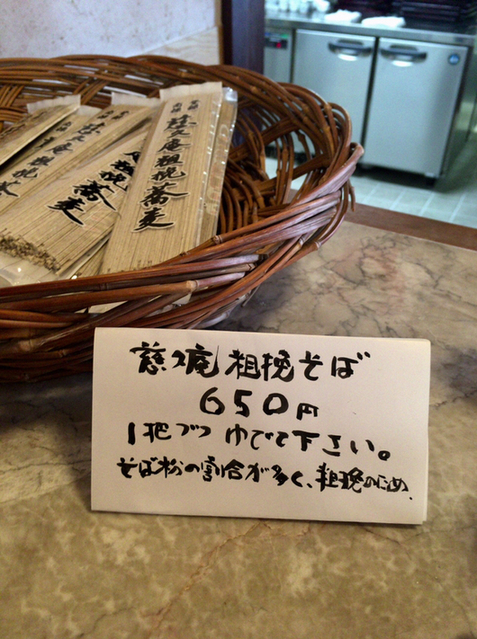 慈久庵粗挽蕎麦
慈久庵 粗挽そば
650円
1把づつ ゆでて下さい。
そば粉の割合が多く、粗挽のため